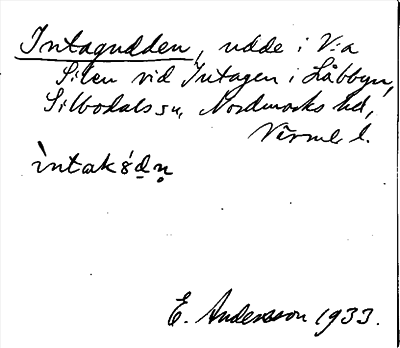 Intagudden, udde i V:a
Silen vid Intagen i Låbbyn,
Silbodals sn, Nordmarks hd,
Värml l.
ìntak8́d̲n̥
E. Andersson 1933.